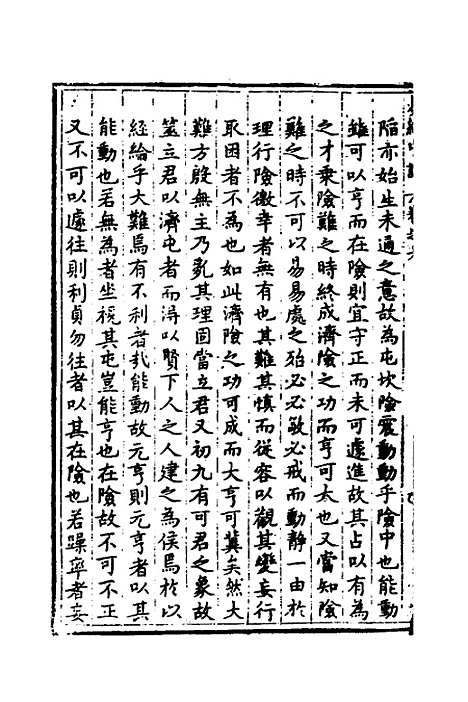 陷亦始生未通之意故為屯坎險震動動乎險中也能動
雖可以亨而在險則宜守正而未可遽進故其占以有為
之才乗險難之時終成濟險之功而亨可大也又當知險
難之時不可以易易處之殆必必敬必戒而動靜一由於
理行險徼幸者無有也其難其慎而從容以觀其變妄行
取困者不為也如此濟險之功可成而大亨可冀矣然大
難方殷無主乃亂其理固當立君又初九有可君之象故
筮立君以濟屯者而得以賢下人之人建之為侯焉於以
經綸乎大難焉有不利者㢤能動故元亨則元亨者以其
能動也若無為者坐視其屯豈能亨也在險故不可不正
又不可以遽往則利貞勿往者以其在險也若躁率者妄